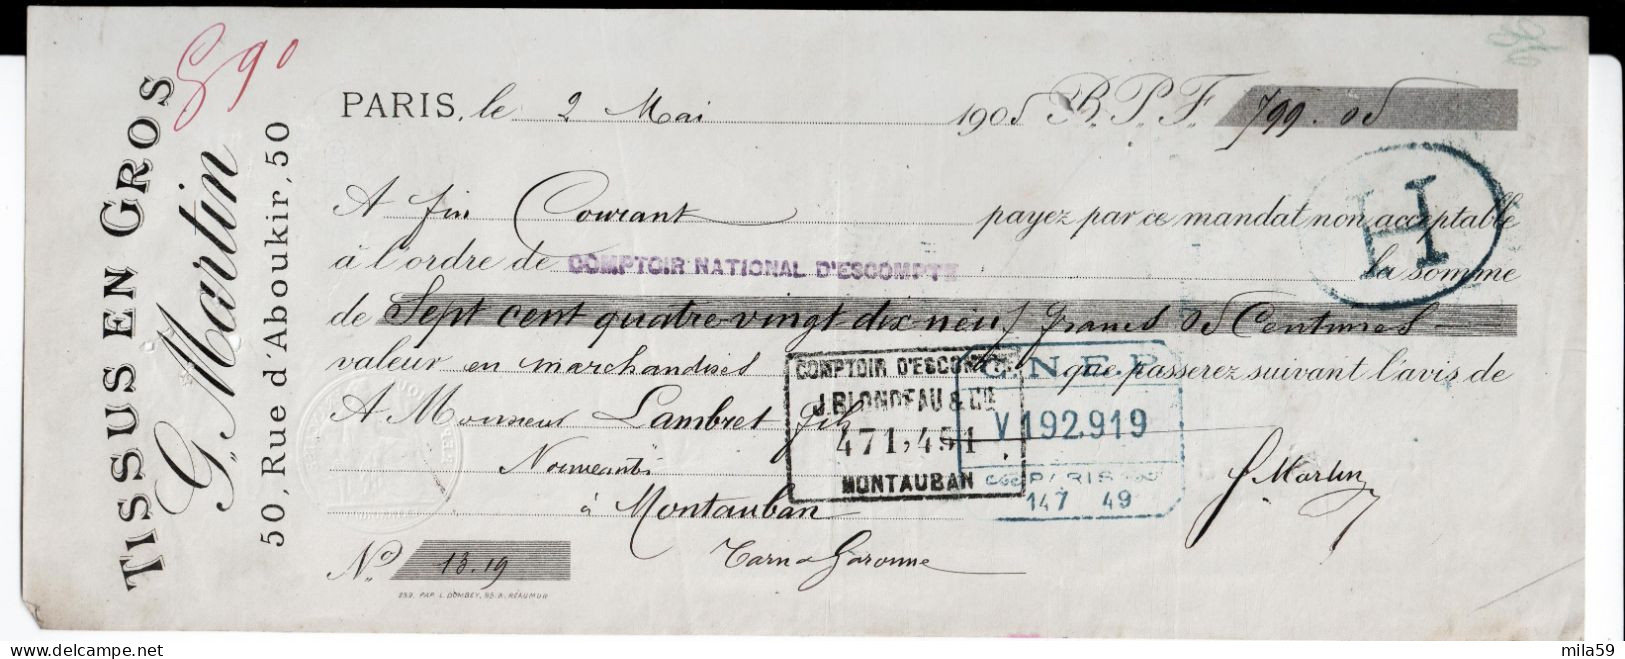 TISSUS EN GROS
G. Martin
50, Rue d'Aboukir, 50
890
PARIS, le 2 Mai 1905 B.P.F. 799.05
A fin Courant payez par ce mandat non acceptable
à l'ordre de COMPTOIR NATIONAL D'ESCOMPTE la somme
de Sept cent quatre-vingt-dix-neuf francs 05 Centimes
valeur en marchandises que passerez suivant l'avis de
A Monsieur Lambret fils
Nouveautés
à Montauban
Tarn & Garonne
G. Martin
No 13.19
252. PAP. L. DOMBEY, 55. R. RÉAUMUR
H
COMPTOIR D'ESCOMPTE
J. BLONDEAU & CIE
471,451
MONTAUBAN
C.N.E.P.
V192.919
PARIS
147 49
delcampe.net
mila59